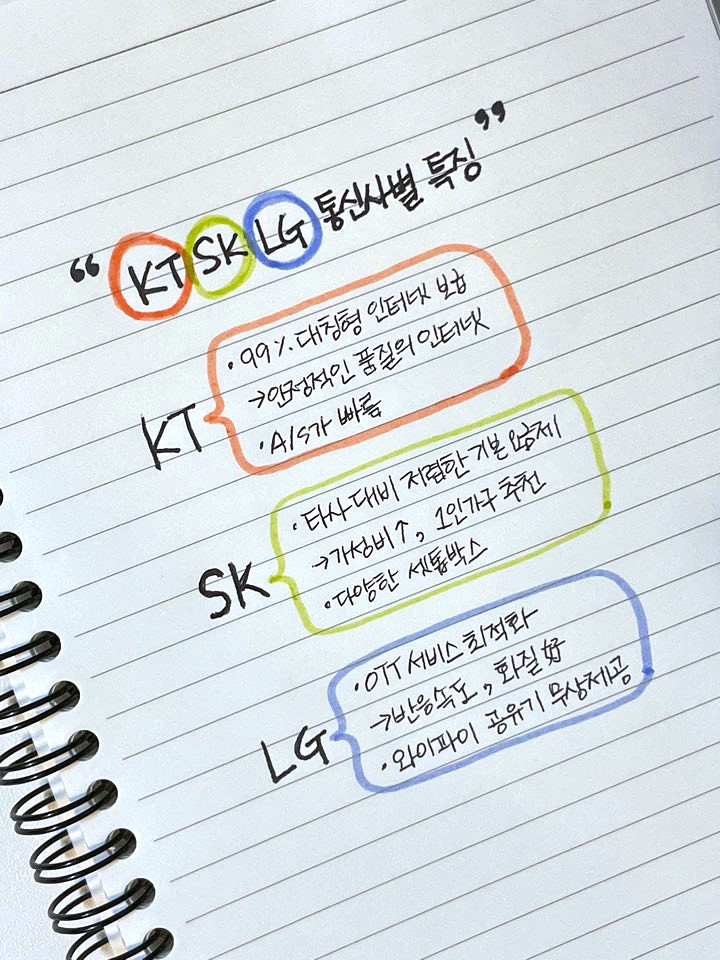 “ KT SK LG 통신사별 특징 ”
KT
· 99% 대칭형 인터넷 보급
→안정적인 품질의 인터넷
· A/S가 빠름
SK
· 타사 대비 저렴한 기본 요금제
→가성비↑, 1인가구 추천
· 다양한 셋톱박스
LG
· OTT 서비스 최적화
→반응속도, 화질 好
· 와이파이 공유기 무상제공